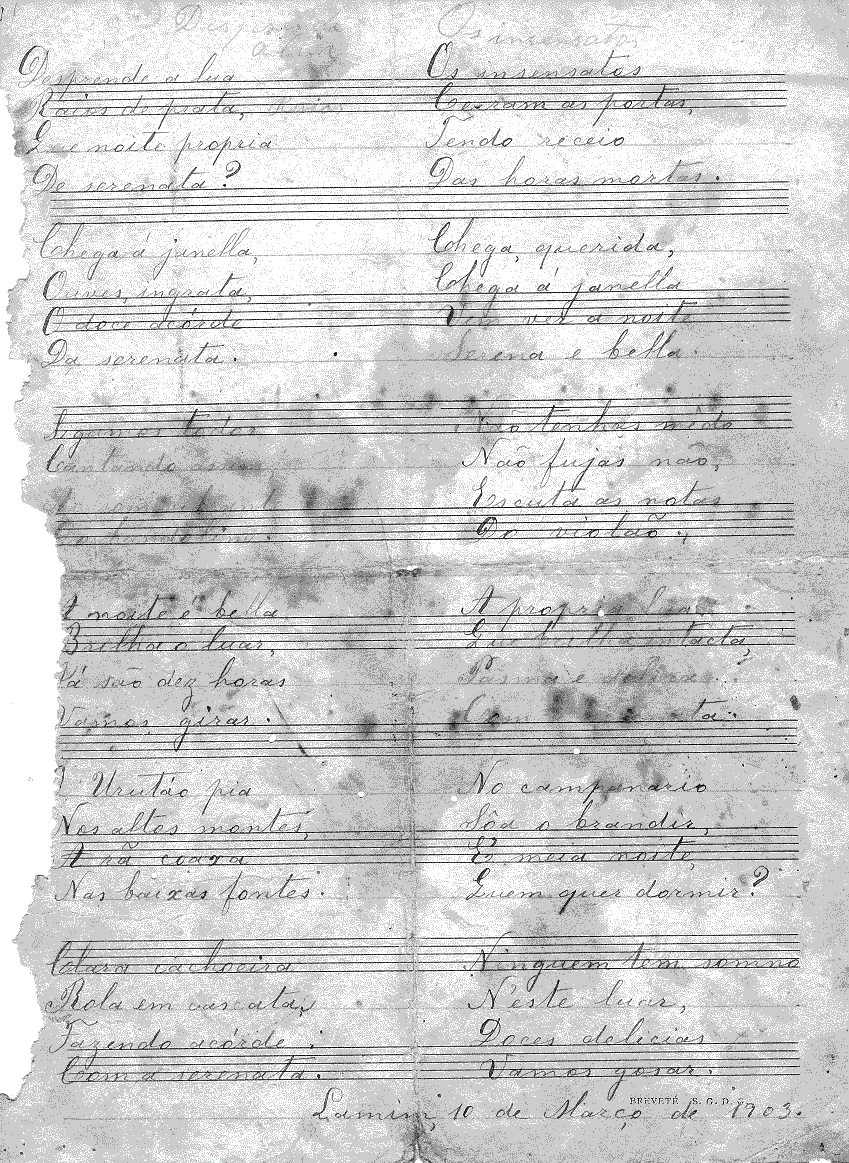 Desprende a lua
Raios de prata,
Que noite propria
De serenata?
Chega á janella,
Ouves, ingrata,
O doce acórde
Da serenata.
Sigamos todos
Cantando assim
Do bandolim.
A noite é bella
Brilha o luar,
Já são dez horas
Vamos girar.
O Urutáo pia
Nos altos montes,
A rã coaxa
Nas baixas fontes.
Clara cachoeira
Rola em cascata,
Fazendo acórde
Com a serenata.
Os insensatos
Os insensatos
Cerram as portas,
Tendo receio
Das horas mortas.
Chega, querida,
Chega á janella
Vem ver a noite
Serena e bella.
Não tenhas mêdo
Não fujas não,
Escuta as notas
Do violão.
A propria lua
Que brilha intacta,
Pasma e delira
Com
No campanario
Sôa o brandir,
É meia noite,
Quem quer dormir?
Ninguem tem somno
N'este luar,
Doces delicias
Vamos gosar.
BREVETÉ S. G. D.
Lamim, 10 de Março de 1903.